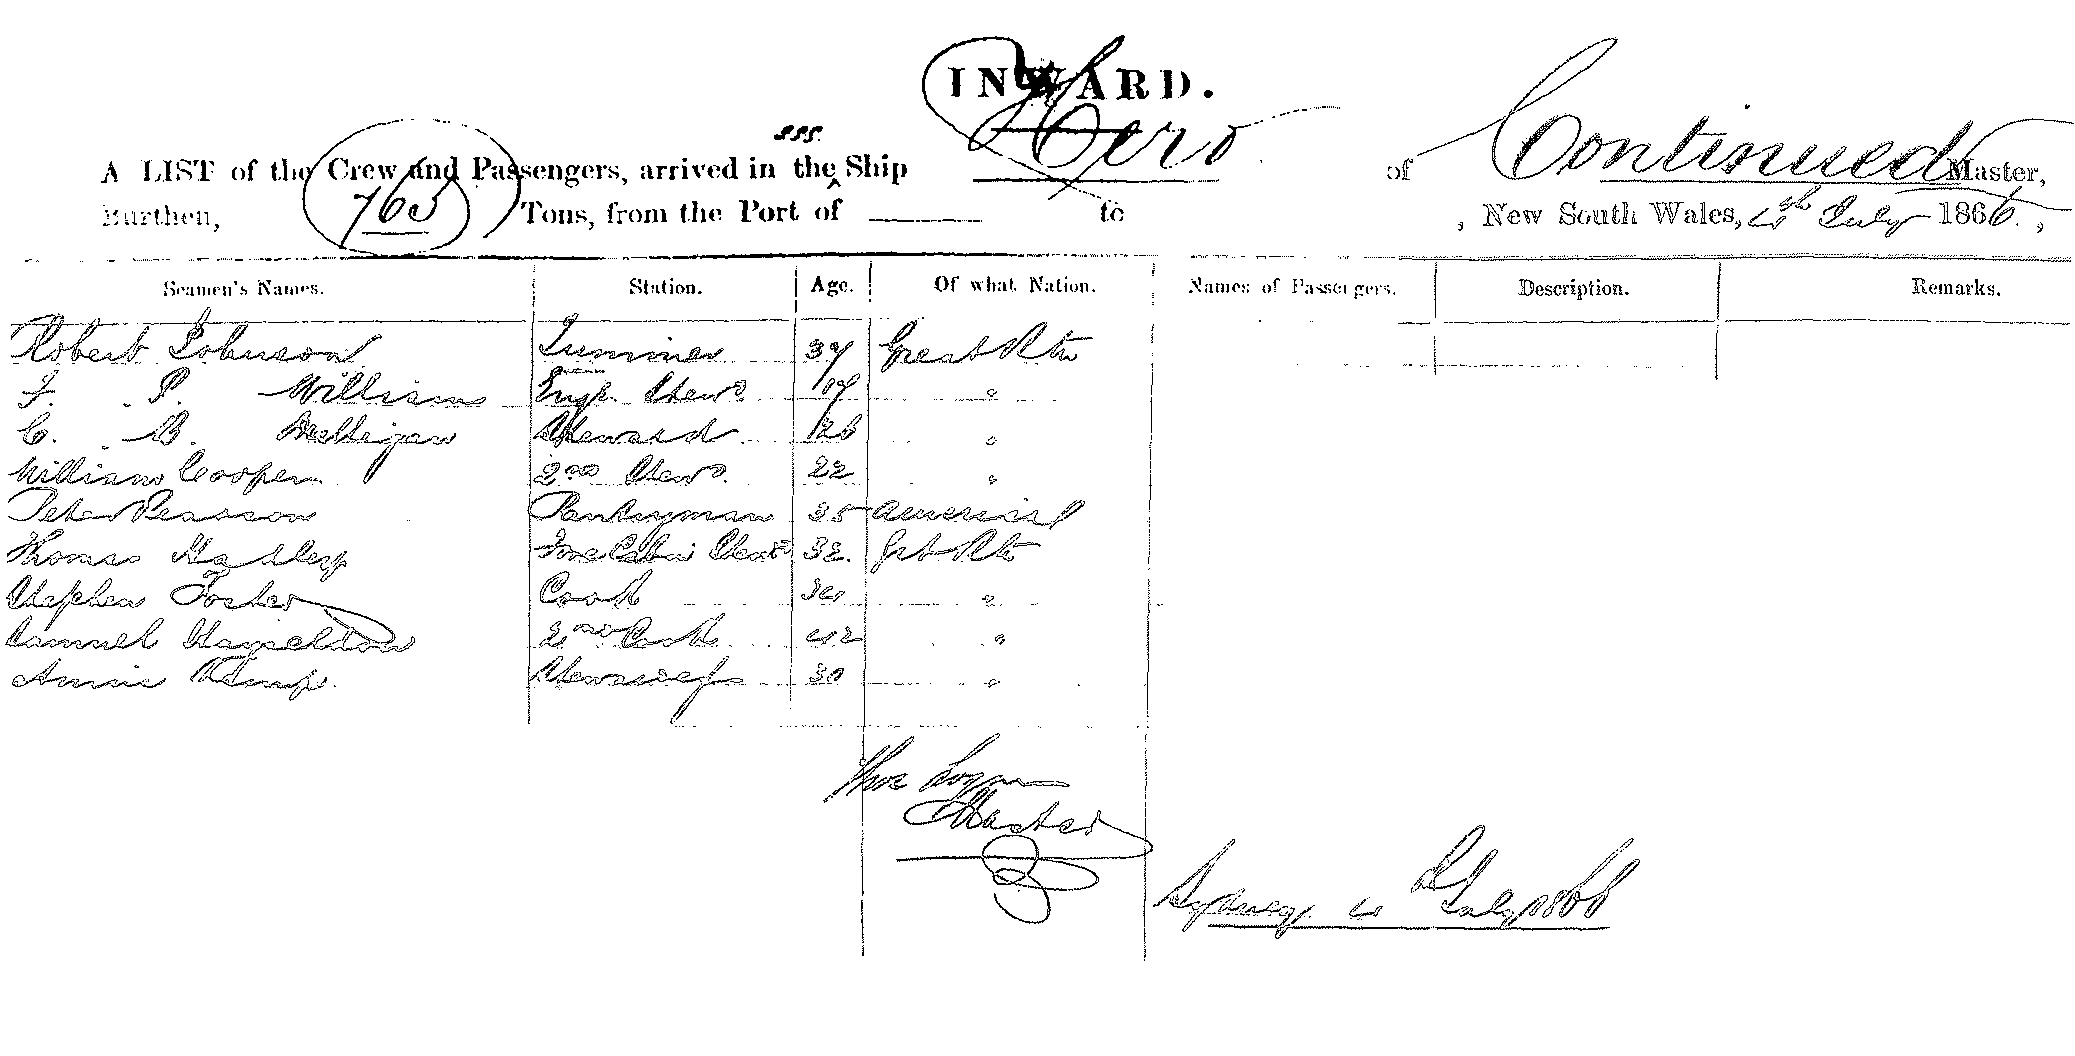 INWARD.
A LIST of the Crew and Passengers, arrived in the SSS. Ship Hero of Continued Master,
Burthen, 763 Tons, from the Port of to , New South Wales, 4th July 1866.,
Seamen's Names. Station. Age. Of what Nation. Names of Passengers. Description. Remarks.
Robert Johnson Trimmer 37 Great Btn
F. P. William Engr. Stewd 19 "
C. B. Melligan Steward 26 "
William Cooper 2nd Stewd. 22 "
Peter Pearson Pantryman 35 America
Thomas Hadley Fore Cabin Stewd 32. Gt Btn
Stephen Foster Cook 34 "
Samuel Hayseldon 2nd Cook 42 "
Annie Kemp. Stewardess 30 "
Thos Logan
Master
Sydney 4 July 1866